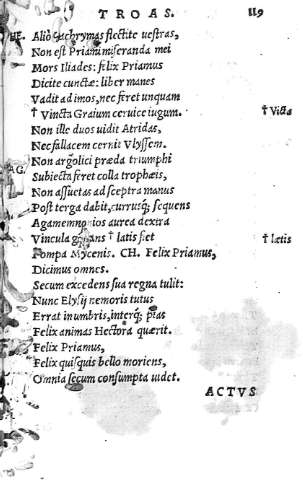 TROAS. 119
HE. Aliò lachrymas flectite uestras,
Non est Priami miseranda mei
Mors Iliades: felix Priamus
Dicite cunctæ: liber manes
Vadit ad imos, nec feret unquam
† Vincta Graium ceruice iugum. † Victa
Non ille duos uidit Atridas,
Nec fallacem cernit Vlyssem.
Non argolici præda triumphi
AG. Subiecta feret colla trophæis,
Non assuetas ad sceptra manus
Post terga dabit, currusq; sequens
Agamemnonios aurea dextra
Vincula gestans † latis fiet † lætis
Pompa Mycenis. CH. Felix Priamus,
Dicimus omnes.
Secum excedens sua regna tulit:
Nunc Elysij nemoris tutus
Errat in umbris, interq; pias
Felix animas Hectora quærit.
Felix Priamus,
Felix quisquis bello moriens,
Omnia secum consumpta uidet.
ACTVS